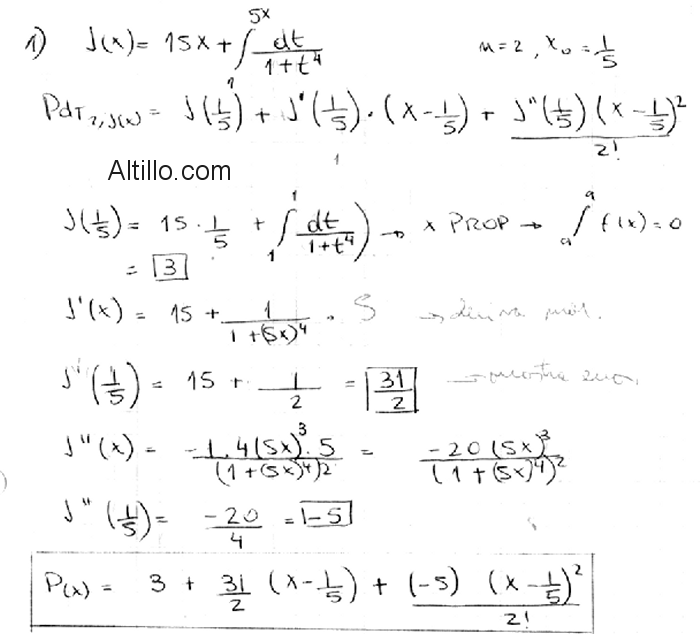 1) J(x) = 15x + ∫₁^5x dt/(1+t⁴)    n=2, x₀=1/5
PdT₂,J(x) = J(1/5) + J'(1/5)·(x-1/5) + J''(1/5)(x-1/5)²/2!
Altillo.com
J(1/5) = 15·1/5 + ∫₁^1 dt/(1+t⁴)) → x PROP → ∫ₐ^a f(x)=0
= 3
J'(x) = 15 + 1/(1+(5x)⁴) · 5 →
J'(1/5) = 15 + 1/2 = 31/2 →
J''(x) = -1.4(5x)³.5/(1+(5x)⁴)2 = -20(5x)³/(1+(5x)⁴)²
J''(1/5) = -20/4 = -5
P(x) = 3 + 31/2 (x-1/5) + (-5) (x-1/5)²/2!